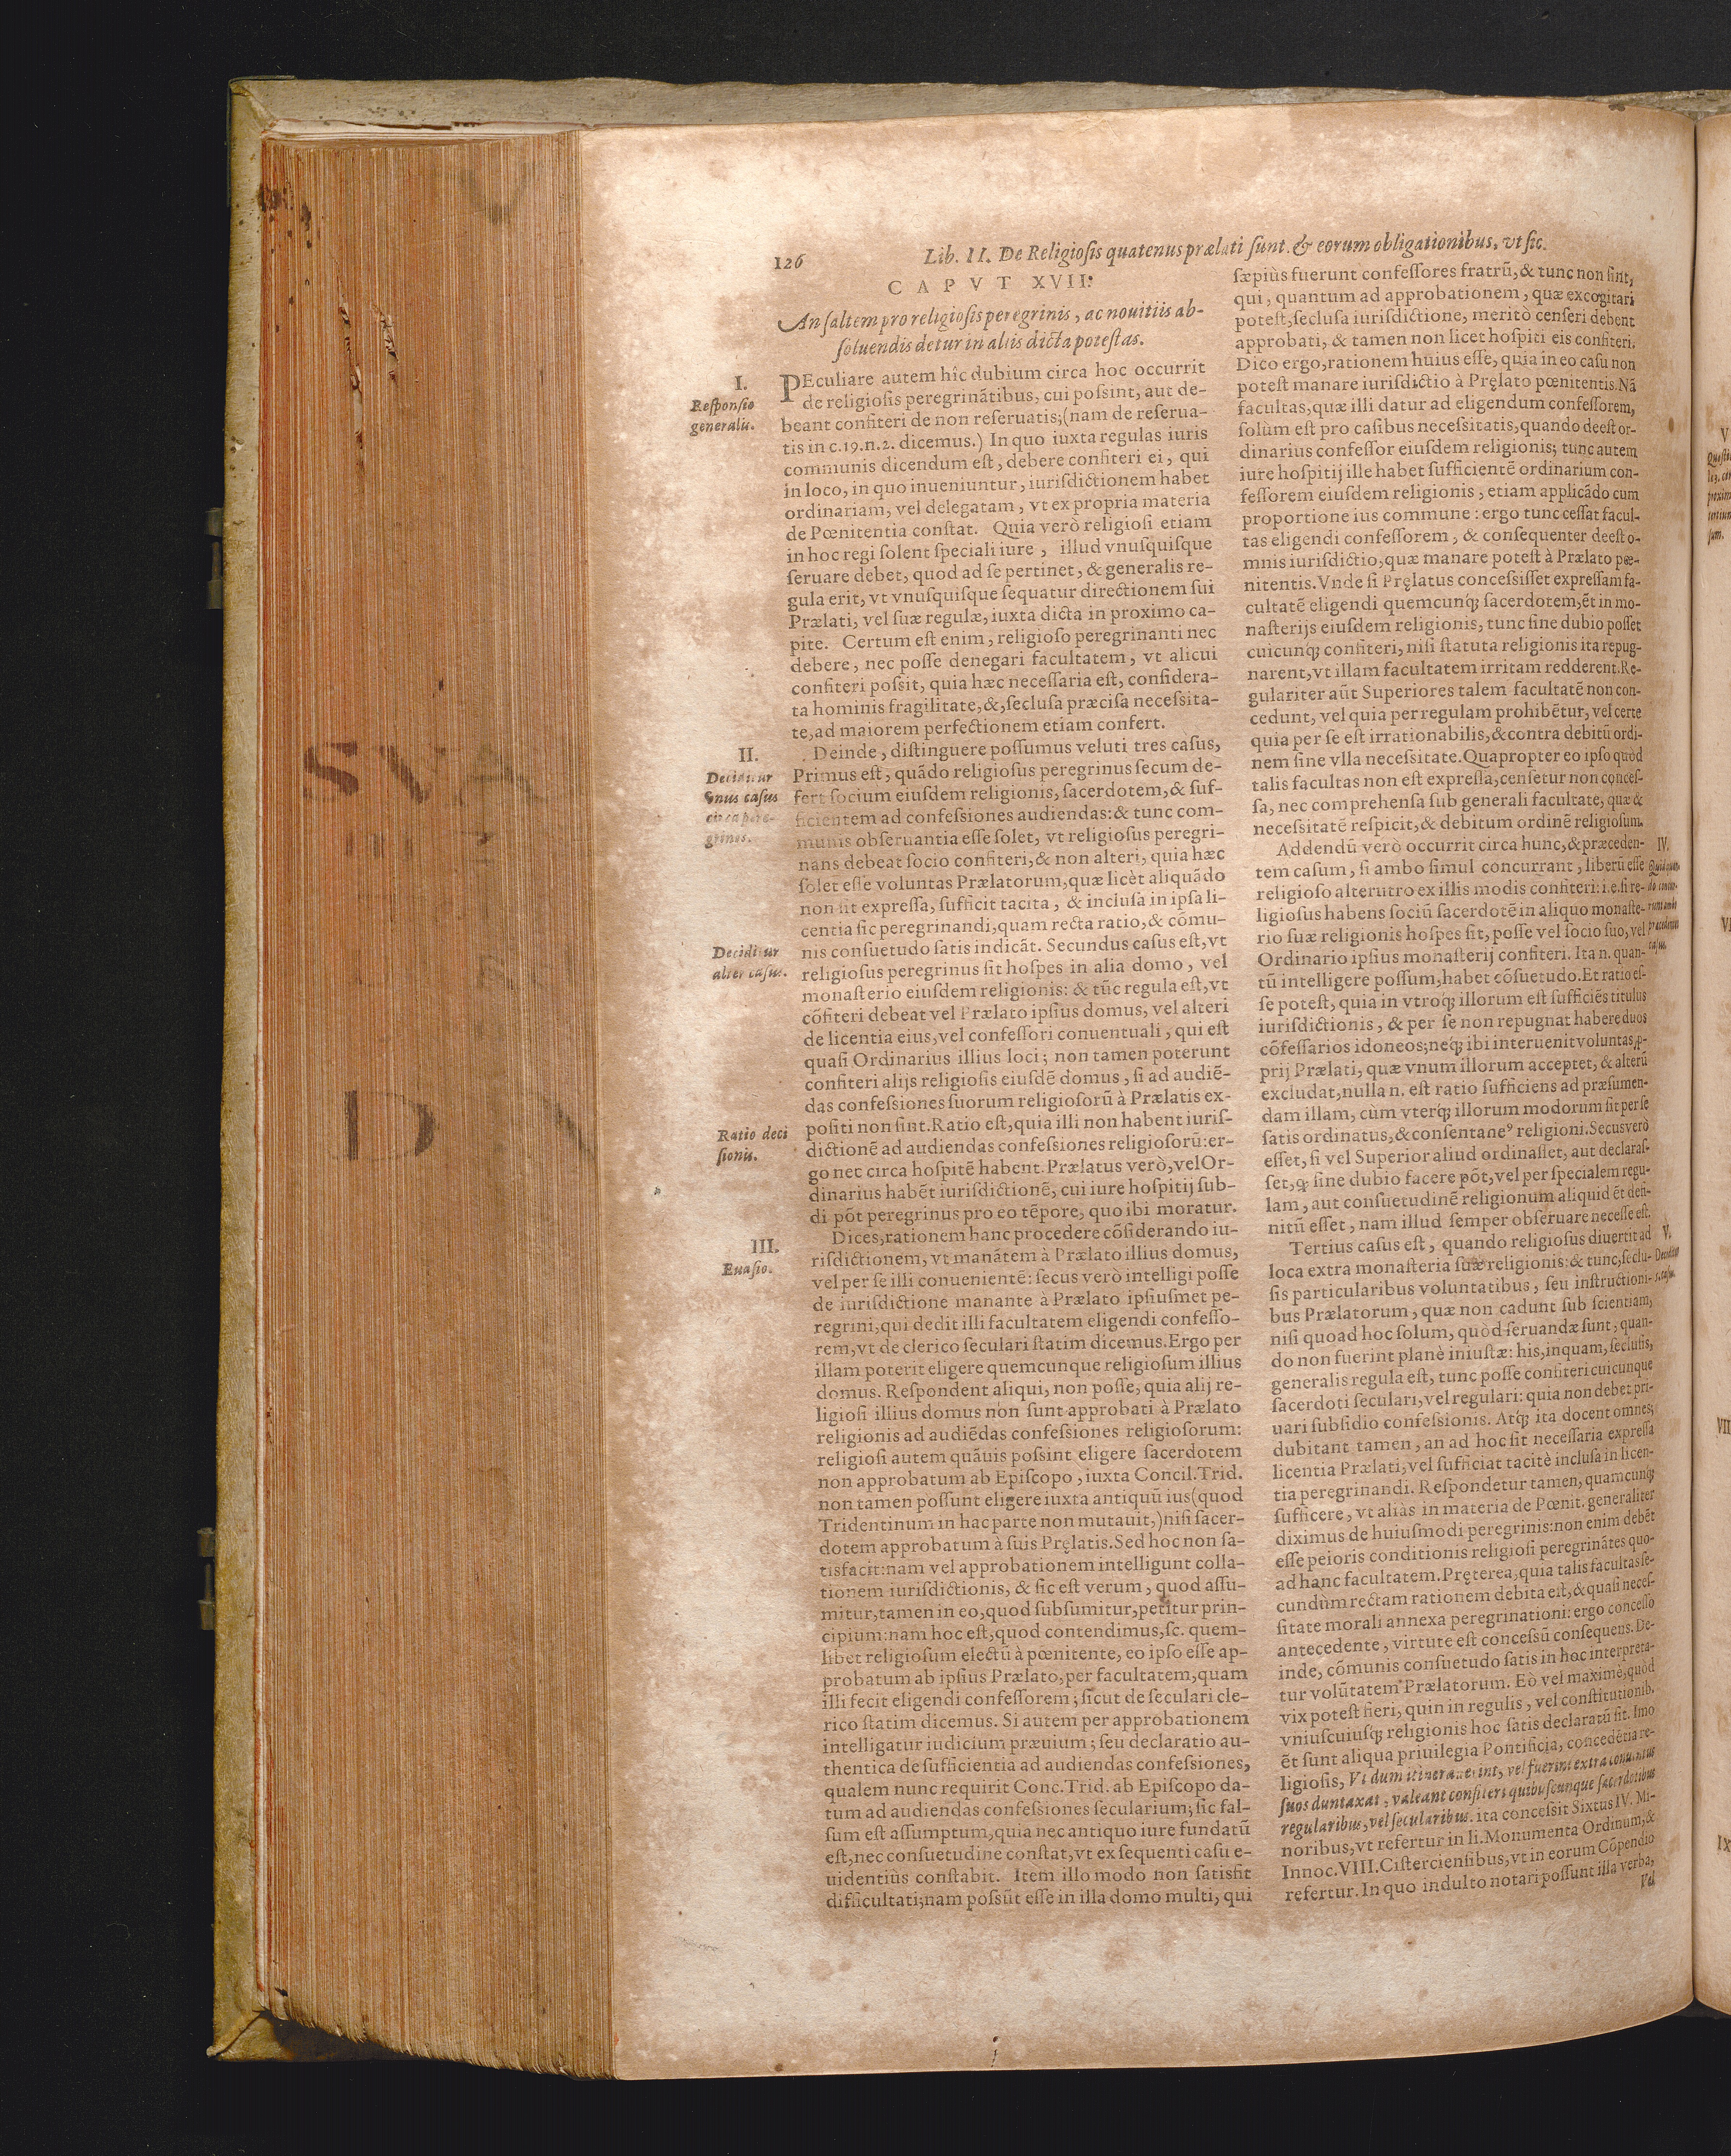 126
Lib. II. De Religiosis quatenus prælati sunt. & eorum obligationibus, vt sic.
CAPVT XVII.
An saltem pro religiosis peregrinis, ac nouitiis ab-
soluendis detur in aliis dicta potestas.
I.
Responsio
generalis.
PEculiare autem hîc dubium circa hoc occurrit
de religiosis peregrinãtibus, cui possint, aut de-
beant confiteri de non reseruatis; (nam de reserua-
tis in c.19.n.2. dicemus.) In quo iuxta regulas iuris
communis dicendum est, debere confiteri ei, qui
in loco, in quo inueniuntur, iurisdictionem habet
ordinariam, vel delegatam, vt ex propria materia
de Pœnitentia constat. Quia verò religiosi etiam
in hoc regi solent speciali iure, illud vnusquisque
seruare debet, quod ad se pertinet, & generalis re-
gula erit, vt vnusquisque sequatur directionem sui
Prælati, vel suæ regulæ, iuxta dicta in proximo ca-
pite. Certum est enim, religioso peregrinanti nec
debere, nec posse denegari facultatem, vt alicui
confiteri possit, quia hæc necessaria est, considera-
ta hominis fragilitate, &, seclusa præcisa necessita-
te, ad maiorem perfectionem etiam confert.
II.
Deciditur
vnus casus
circa pere-
grinos.
Deinde, distinguere possumus veluti tres casus,
Primus est, quãdo religiosus peregrinus secum de-
fert socium eiusdem religionis, sacerdotem, & suf-
ficientem ad confessiones audiendas: & tunc com-
munis obseruantia esse solet, vt religiosus peregri-
nans debeat socio confiteri, & non alteri, quia hæc
solet esse voluntas Prælatorum, quæ licèt aliquãdo
non sit expressa, sufficit tacita, & inclusa in ipsa li-
centia sic peregrinandi, quam recta ratio, & cõmu-
nis consuetudo satis indicãt. Secundus casus est, vt
Deciditur
alter casus.
religiosus peregrinus sit hospes in alia domo, vel
monasterio eiusdem religionis: & tũc regula est, vt
cõfiteri debeat vel Prælato ipsius domus, vel alteri
de licentia eius, vel confessori conuentuali, qui est
quasi Ordinarius illius loci; non tamen poterunt
confiteri alijs religiosis eiusdẽ domus, si ad audiẽ-
das confessiones suorum religiosorũ à Prælatis ex-
positi non sint. Ratio est, quia illi non habent iuris-
Ratio deci
sionis.
dictionẽ ad audiendas confessiones religiosorũ: er-
go nec circa hospitẽ habent. Prælatus verò, vel Or-
dinarius habẽt iurisdictionẽ, cui iure hospitij sub-
di põt peregrinus pro eo tẽpore, quo ibi moratur.
III.
Euasio.
Dices, rationem hanc procedere cõsiderando iu-
risdictionem, vt manãtem à Prælato illius domus,
vel per se illi conuenientẽ: secus verò intelligi posse
de iurisdictione manante à Prælato ipsiusmet pe-
regrini, qui dedit illi facultatem eligendi confesso-
rem, vt de clerico seculari statim dicemus. Ergo per
illam poterit eligere quemcunque religiosum illius
domus. Respondent aliqui, non posse, quia alij re-
ligiosi illius domus non sunt approbati à Prælato
religionis ad audiẽdas confessiones religiosorum:
religiosi autem quãuis possint eligere sacerdotem
non approbatum ab Episcopo, iuxta Concil. Trid.
non tamen possunt eligere iuxta antiquũ ius (quod
Tridentinum in hac parte non mutauit,) nisi sacer-
dotem approbatum à suis Pręlatis. Sed hoc non sa-
tisfacit: nam vel approbationem intelligunt colla-
tionem iurisdictionis, & sic est verum, quod assu-
mitur, tamen in eo, quod subsumitur, petitur prin-
cipium: nam hoc est, quod contendimus, sc. quem-
libet religiosum electũ à pœnitente, eo ipso esse ap-
probatum ab ipsius Prælato, per facultatem, quam
illi fecit eligendi confessorem; sicut de seculari cle-
rico statim dicemus. Si autem per approbationem
intelligatur iudicium præuium; seu declaratio au-
thentica de sufficientia ad audiendas confessiones,
qualem nunc requirit Conc. Trid. ab Episcopo da-
tum ad audiendas confessiones secularium; sic fal-
sum est assumptum, quia nec antiquo iure fundatũ
est, nec consuetudine constat, vt ex sequenti casu e-
uidentiùs constabit. Item illo modo non satisfit
difficultati; nam possũt esse in illa domo multi, qui
sæpiùs fuerunt confessores fratrũ, & tunc non sint,
qui, quantum ad approbationem, quæ excogitari
potest, seclusa iurisdictione, meritò censeri debent
approbati, & tamen non licet hospiti eis confiteri.
Dico ergo, rationem huius esse, quia in eo casu non
potest manare iurisdictio à Pręlato pœnitentis. Nã
facultas, quæ illi datur ad eligendum confessorem,
solùm est pro casibus necessitatis, quando deest or-
dinarius confessor eiusdem religionis; tunc autem
iure hospitij ille habet sufficientẽ ordinarium con-
fessorem eiusdem religionis, etiam applicãdo cum
proportione ius commune: ergo tunc cessat facul-
tas eligendi confessorem, & consequenter deest o-
mnis iurisdictio, quæ manare potest à Prælato pœ-
nitentis. Vnde si Pręlatus concessisset expressam fa-
cultatẽ eligendi quemcunq; sacerdotem, ẽt in mo-
nasterijs eiusdem religionis, tunc sine dubio posset
cuicunq; confiteri, nisi statuta religionis ita repug-
narent, vt illam facultatem irritam redderent. Re-
gulariter aũt Superiores talem facultatẽ non con-
cedunt, vel quia per regulam prohibẽtur, vel certe
quia per se est irrationabilis, & contra debitũ ordi-
nem sine vlla necessitate. Quapropter eo ipso quòd
talis facultas non est expressa, censetur non conces-
sa, nec comprehensa sub generali facultate, quæ &
necessitatẽ respicit, & debitum ordinẽ religiosum.
Addendũ verò occurrit circa hunc, & præceden-
IV.
tem casum, si ambo simul concurrant, liberũ esse
religioso alterutro ex illis modis confiteri: i.e. si re-
ligiosus habens sociũ sacerdotẽ in aliquo monaste-
rio suæ religionis hospes sit, posse vel socio suo, vel
præcedentes
casus.
Ordinario ipsius monasterij confiteri. Ita n. quan-
tũ intelligere possum, habet cõsuetudo. Et ratio es-
se potest, quia in vtroq; illorum est sufficiẽs titulus
iurisdictionis, & per se non repugnat habere duos
cõfessarios idoneos; neq; ibi interuenit voluntas p-
prij Prælati, quæ vnum illorum acceptet, & alterũ
excludat, nulla n. est ratio sufficiens ad præsumen-
dam illam, cùm vterq; illorum modorum sit per se
satis ordinatus, & consentaneꝰ religioni. Secus verò
esset, si vel Superior aliud ordinasset, aut declaras-
set, ꝙ sine dubio facere põt, vel per specialem regu-
lam, aut consuetudinẽ religionum aliquid ẽt defi-
nitũ esset, nam illud semper obseruare necesse est.
V.
Tertius casus est, quando religiosus diuertit ad
loca extra monasteria suæ religionis: & tunc, seclu-
sis particularibus voluntatibus, seu instructioni-
bus Prælatorum, quæ non cadunt sub scientiam,
nisi quoad hoc solum, quòd seruandæ sunt, quan-
do non fuerint planè iniustæ: his, inquam, seclusis,
generalis regula est, tunc posse confiteri cuicunque
sacerdoti seculari, vel regulari: quia non debet pri-
uari subsidio confessionis. Atq; ita docent omnes;
dubitant tamen, an ad hoc sit necessaria expressa
licentia Prælati, vel sufficiat tacitè inclusa in licen-
tia peregrinandi. Respondetur tamen, quamcunq;
sufficere, vt aliàs in materia de Pœnit. generaliter
diximus de huiusmodi peregrinis: non enim debẽt
esse peioris conditionis religiosi peregrinãtes quo-
ad hanc facultatem. Pręterea, quia talis facultas se-
cundùm rectam rationem debita est, & quasi neces-
sitate morali annexa peregrinationi: ergo concesso
antecedente, virtute est concessũ consequens. De-
inde, cõmunis consuetudo satis in hoc interpreta-
tur volũtatem Prælatorum. Eò vel maximè, quòd
vix potest fieri, quin in regulis, vel constitutionib.
vniuscuiusq; religionis hoc satis declaratũ sit. Imo
ẽt sunt aliqua priuilegia Pontificia, concedẽtia re-
ligiosis, Vt dum itinerauerint, vel fuerint extra conuentus
suos duntaxat, valeant confiteri quibuscunque sacerdotibus
regularibus, vel secularibus. ita concessit Sixtus IV. Mi-
noribus, vt refertur in li. Monumenta Ordinum, &
Innoc. VIII. Cisterciensibus, vt in eorum Cõpendio
refertur. In quo indulto notari possunt illa verba,
Vel